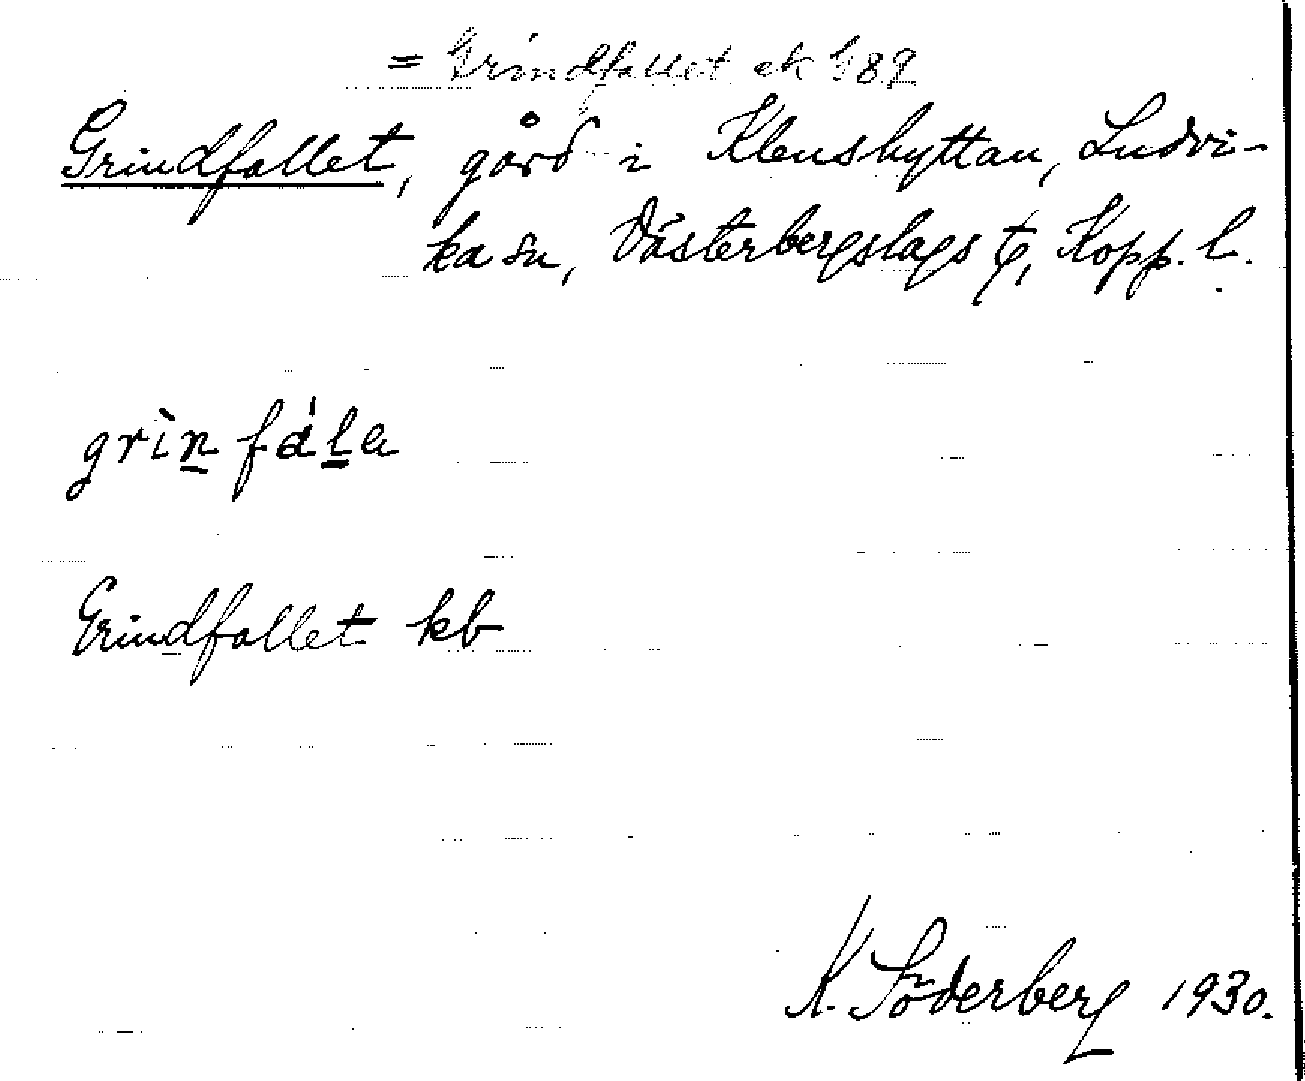 = Grindfallet ek G89
Grindfallet, gård i Klenshyttan, Ludvi-
ka sn, Västerbergslags tg, Kopp. l.
grìn̲ fàl̲a
Grindfallet kb
K. Söderberg 1930.